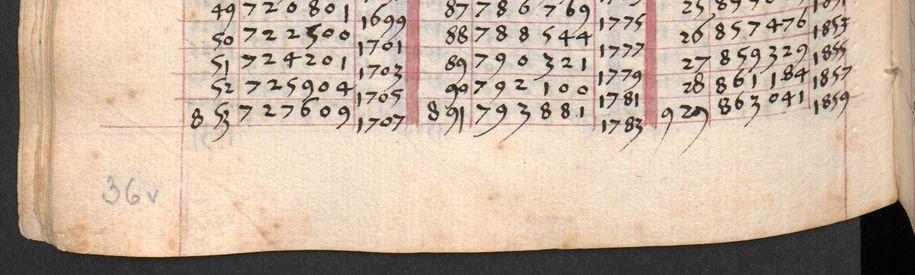 49 720801 1699 87 786769 1775 25
50 722500 1701 88 788544 1777 26 857476 1853
51 724201 1703 89 790321 1779 27 859329 1855
52 725904 1705 90 792100 1781 28 861184 1857
853 727609 1707 891 793881 1783 929 863041 1859
36v